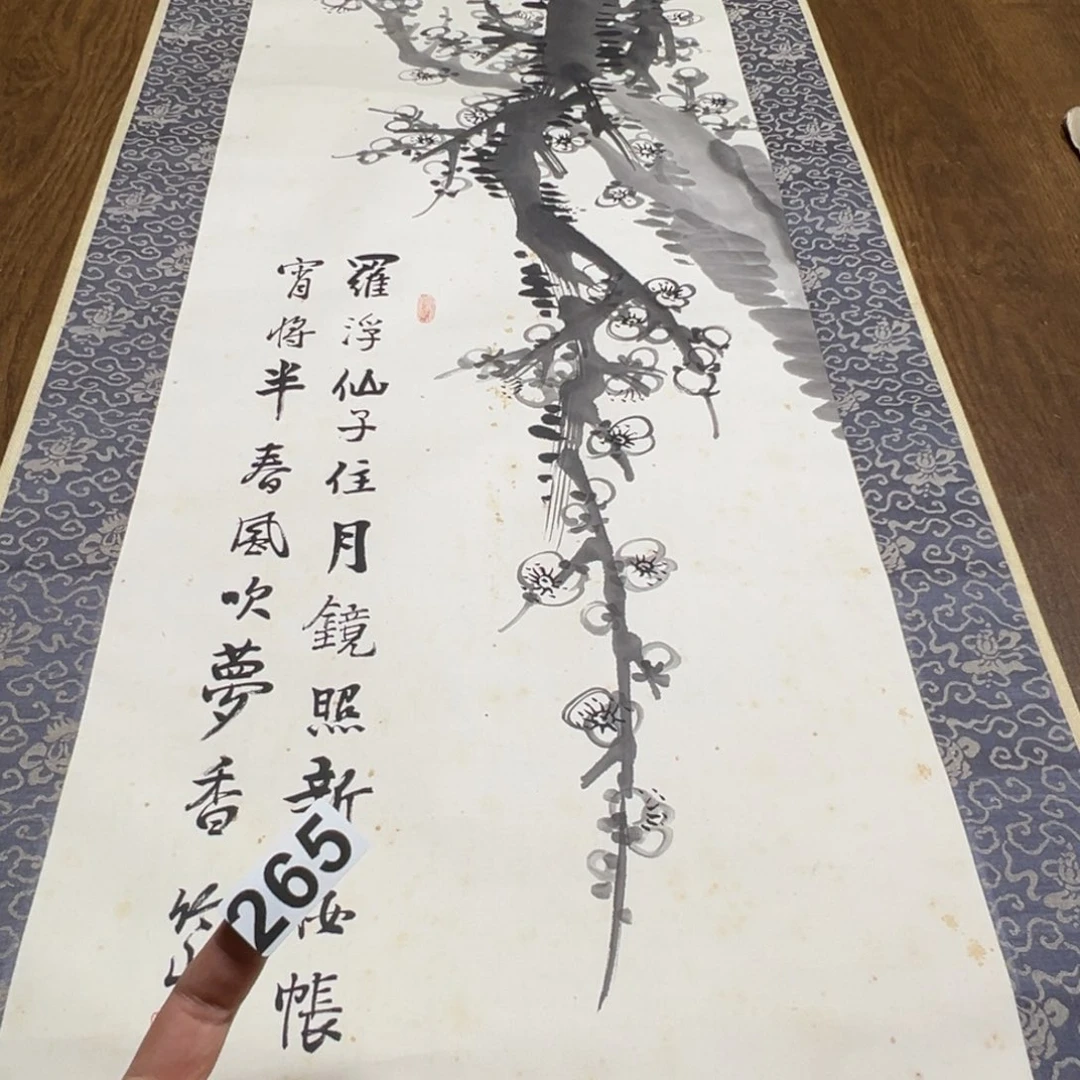 羅浮仙子住月鏡照新帳
宵將半春風吹夢香
265